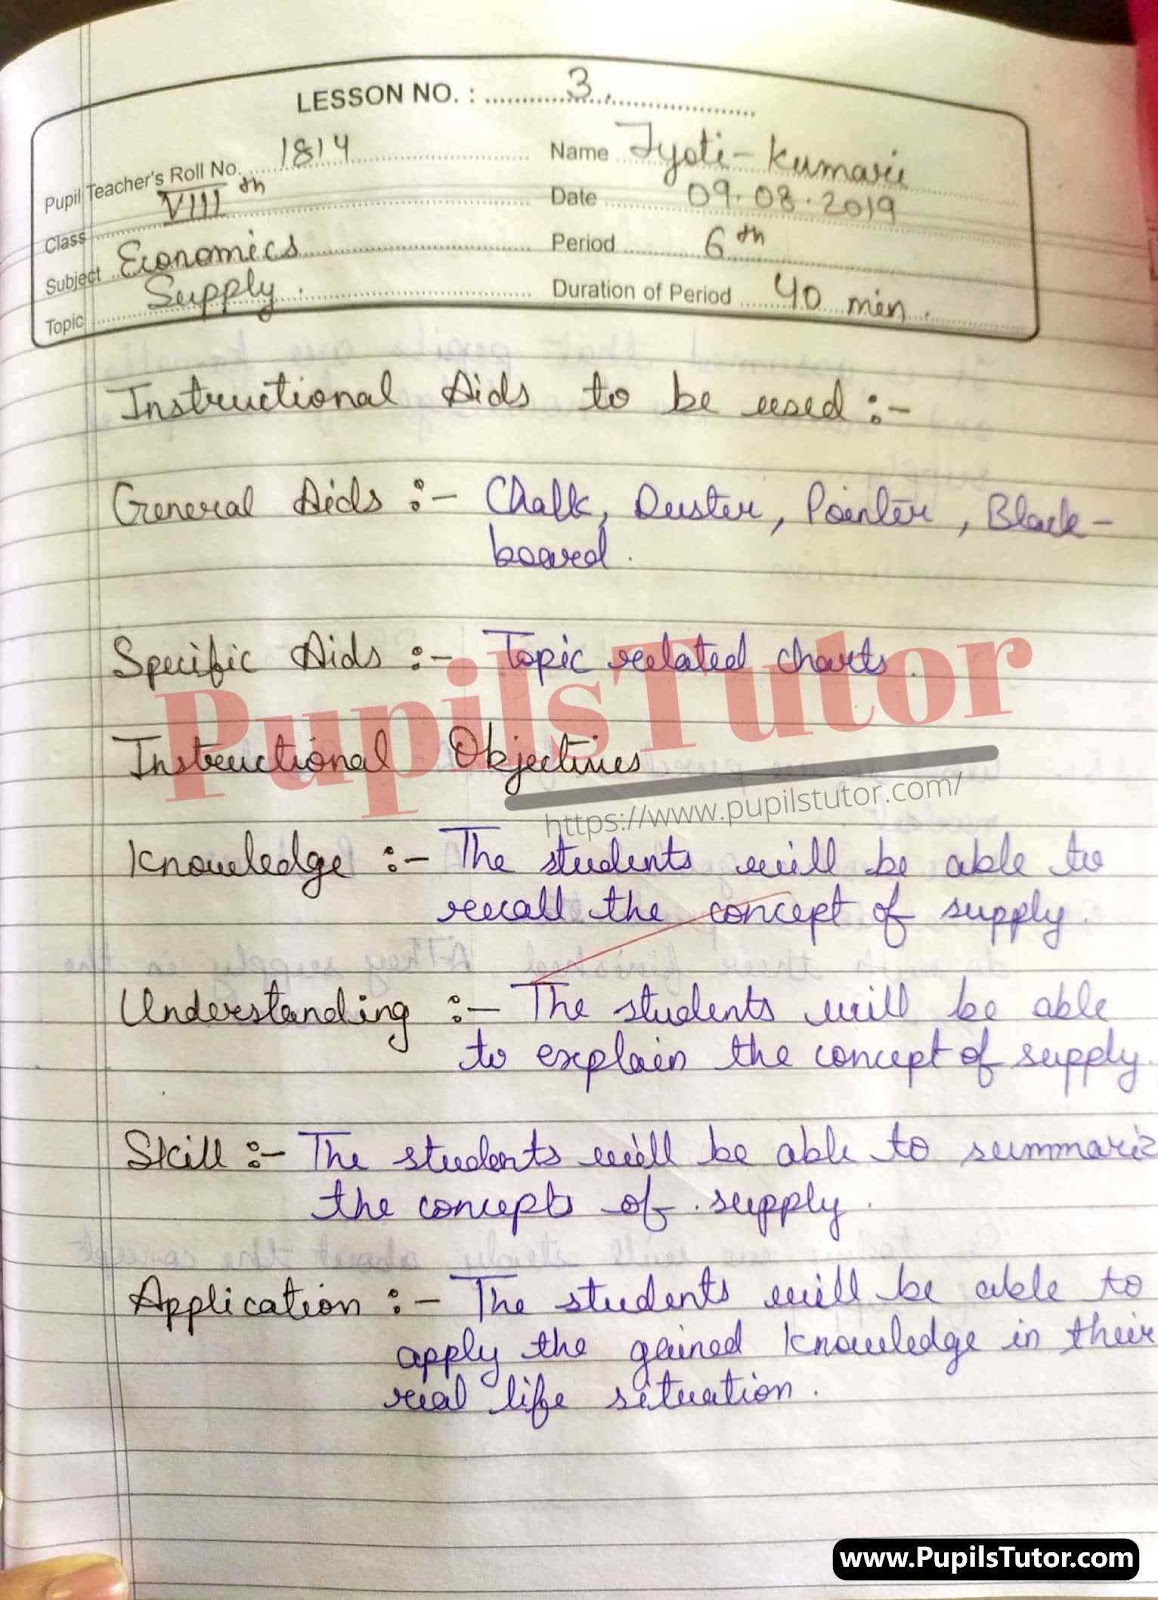 LESSON NO. : 3.
Pupil Teacher's Roll No. 1814
Name Jyoti-Kumari
Class VIIIth
Date 09.08.2019
Subject Economics
Period 6th
Topic Supply.
Duration of Period 40 min.
Instructional Aids to be used :-
General Aids :- Chalk, Duster, Pointer, Black-
board.
Specific Aids :- Topic related charts.
PupilsTutor
Instructional Objectives
https://www.pupilstutor.com/
Knowledge :- The students will be able to
recall the concept of supply.
Understanding :- The students will be able
to explain the concept of supply.
Skill :- The students will be able to summariz
the concepts of supply.
Application :- The students will be able to
apply the gained knowledge in their
real life situation.
www.PupilsTutor.com